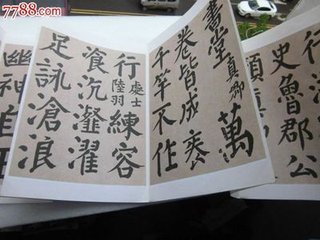 7788.com
行
史魯郡公
書堂真卿萬
卷皆成袠
千竿不作
行處士陸羽練容
飡沆瀣濯
足詠滄浪
幽神自